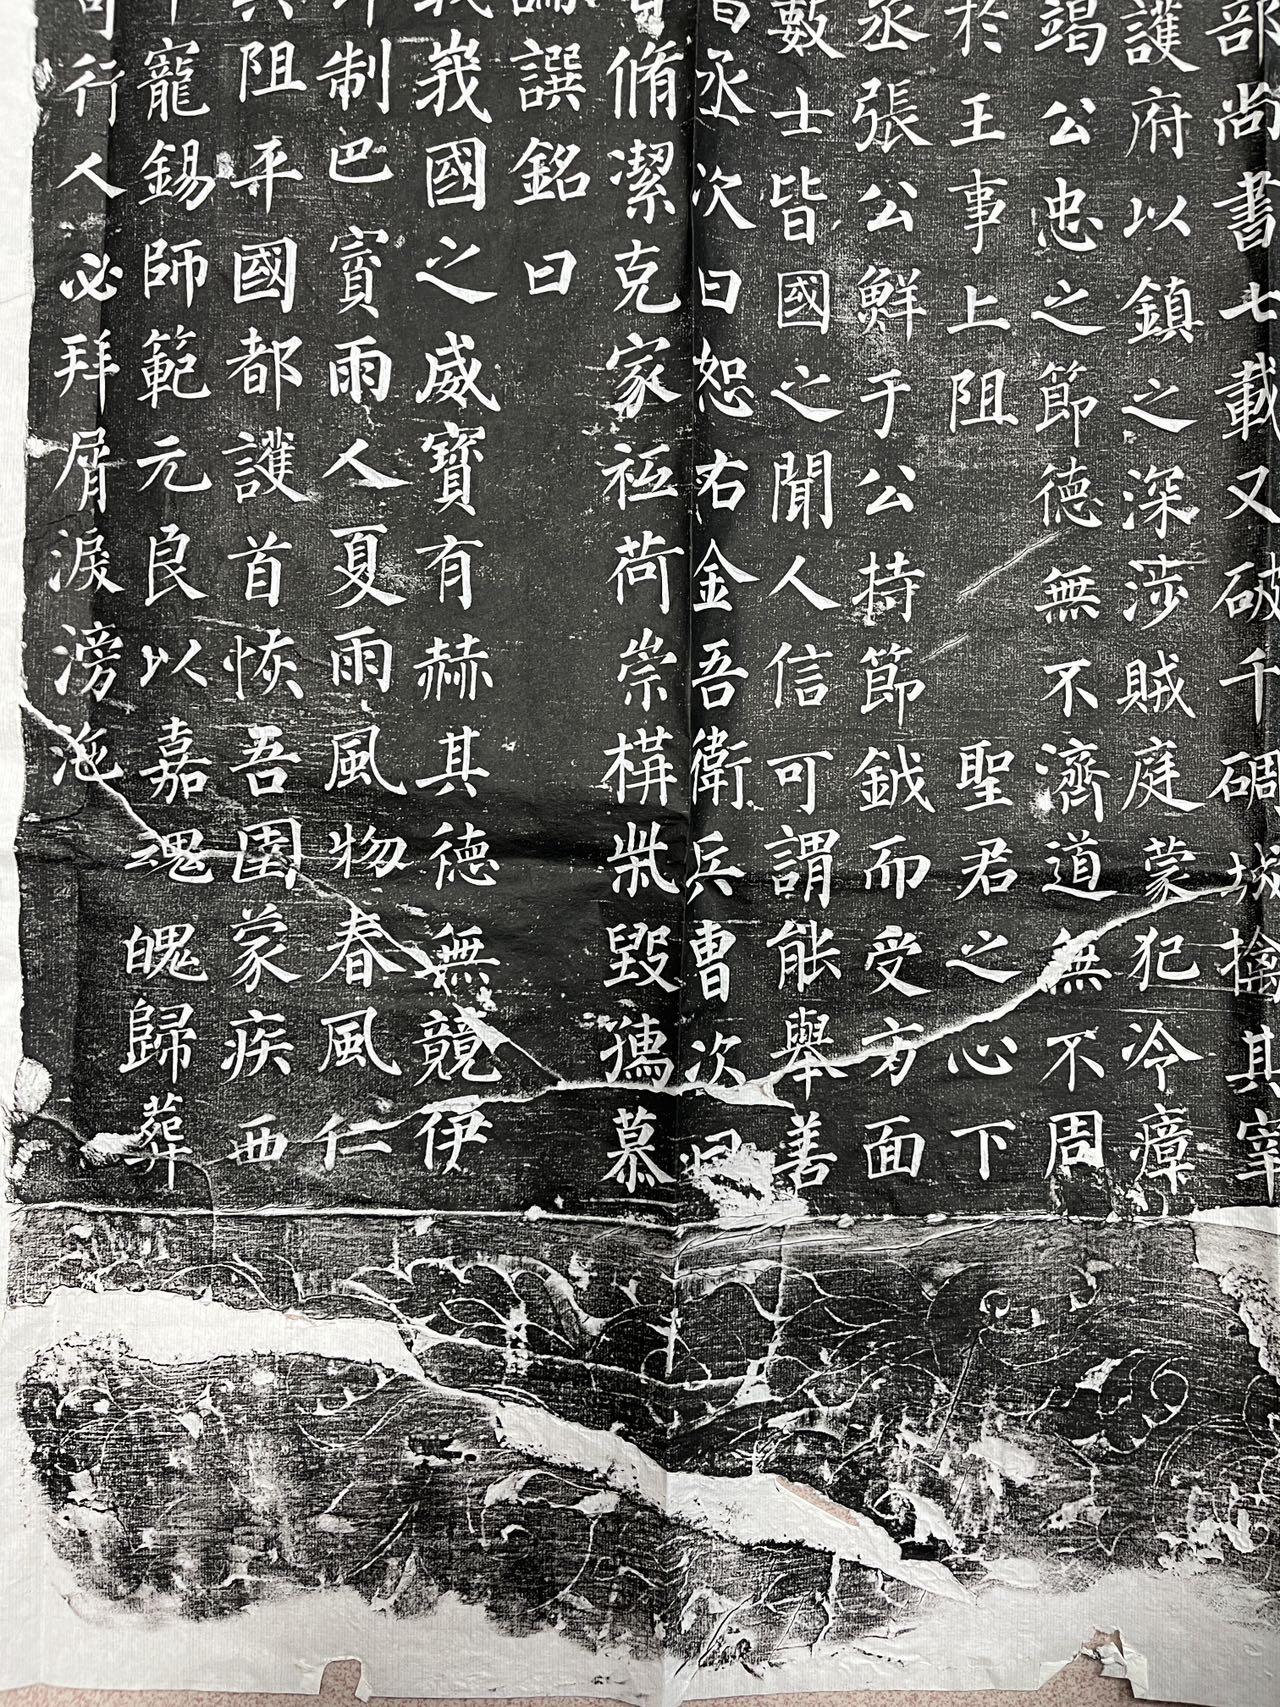 部尚書七載又破千碉城擒其宰
護府以鎮之深涉賊庭蒙犯冷瘴
竭公忠之節德無不濟道無不周
於王事上阻聖君之心下
丞張公鮮于公持節鉞而受方面
數士皆國之聞人信可謂能舉善
曰丞次曰恕右金吾衛兵曹次曰
脩潔克家祗荷崇構柴毀孺慕
譔銘曰
峩國之威寶有赫其德無競伊
制巴賨雨人夏雨風物春風仁
阻平國都護首恢吾圉蒙疾西
寵錫師範元良以嘉魂魄歸葬
行人必拜屑淚滂沲